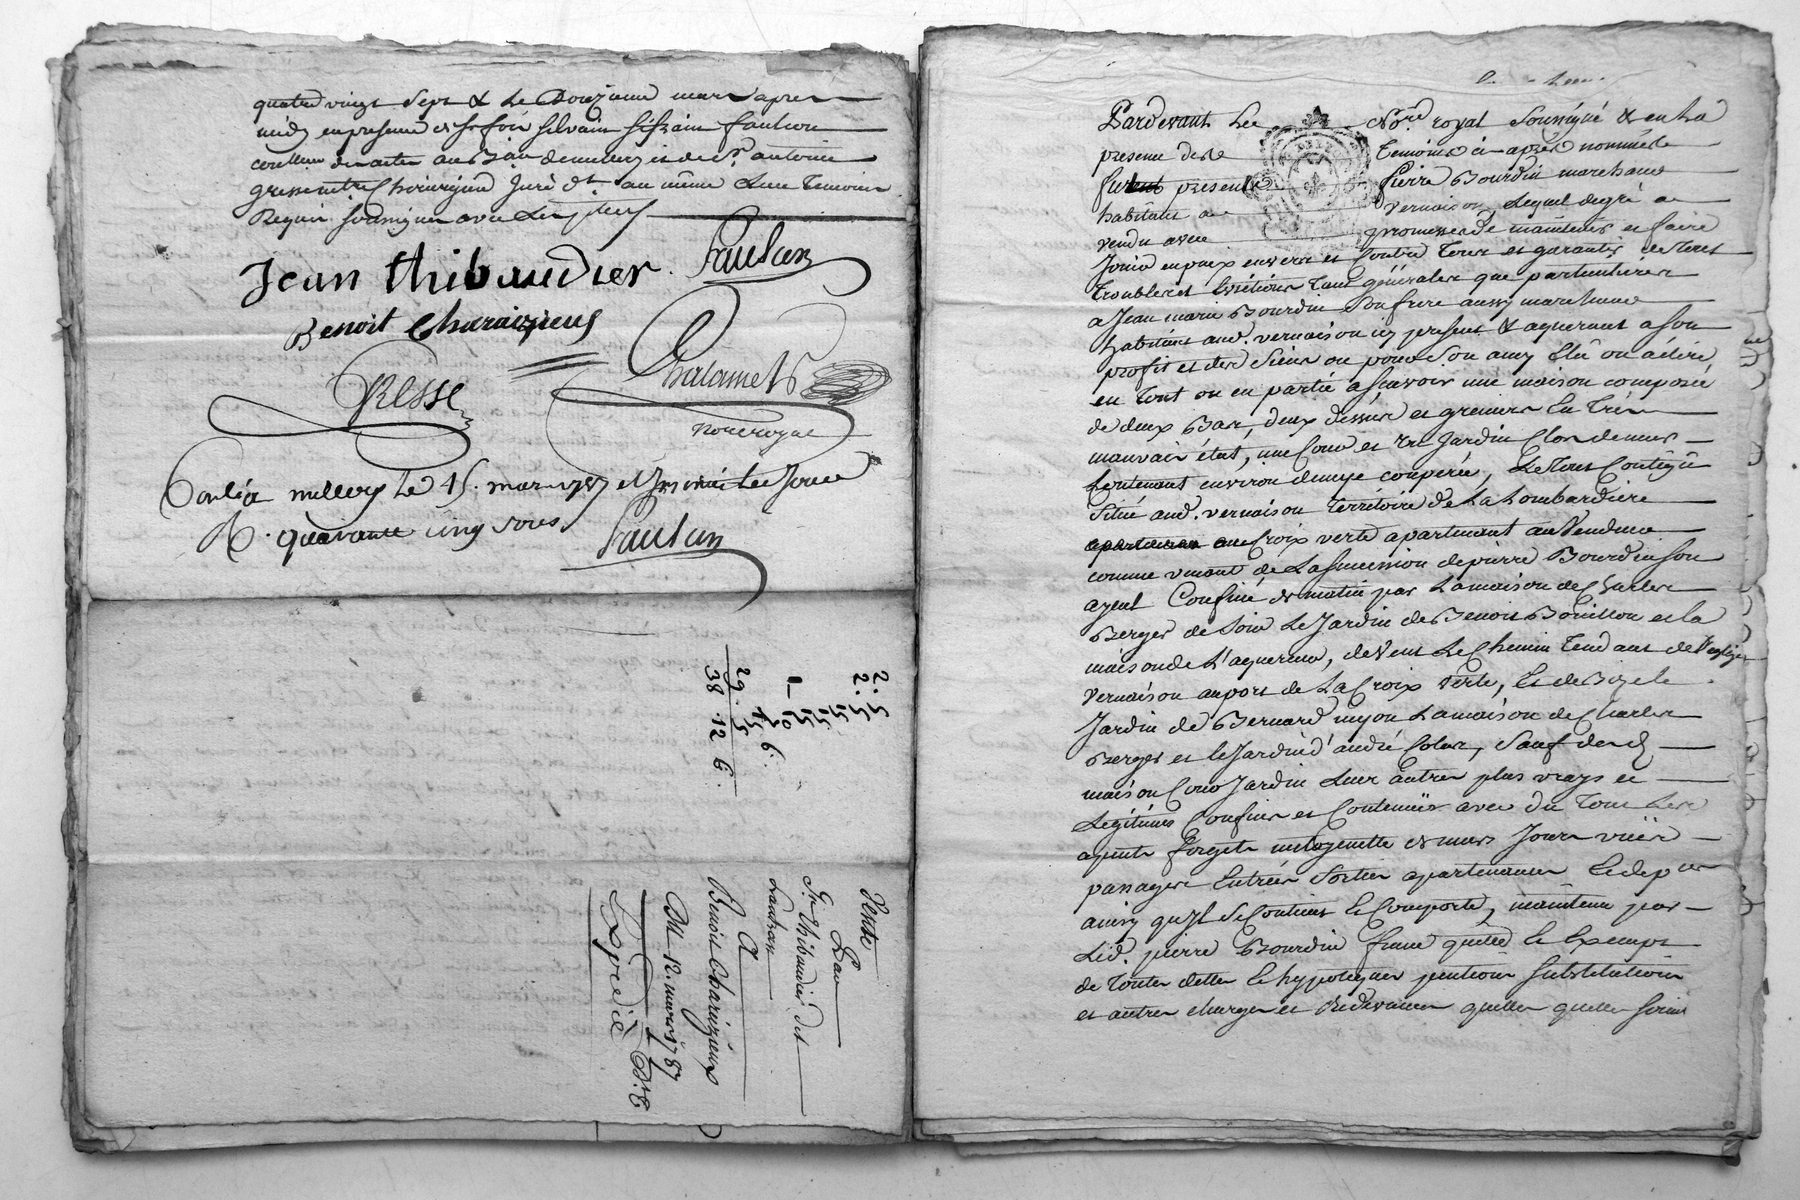 quatre vingt Sept & Le Douzieme mars apres
midy en presence de Sr foix Silvain Sifrain faulcon
conteur des actes au Bau de millery et de Sr antoine
gresse me Chirurgien Juré dt au même Lieu Temoins
Requis Soussignes avec Les pties
Jean thibaudier
faulcon
Benoit Charaizieux
GRESSE
Chalamet
Noreroyal
Conlé a millery le 15. mars 1787 et Insinué led Jour
R. quarante cinq sous
faulcon
2. 5
2. 5
15
15
1 - 10
15 6.
29. 5
38. 12 6.
Vente
Par
Sr Thibaudier dit
A
Benoit Charaizieux
Du 12. mars 1787
Expédié
Pardevant Le Nore royal Soussigné & en La
presence des Temoins ci apres nommés
fut present Pierre Bourdin marchand
habitant a Vernaison, Lequel de gré a
vendu avec promesse de maintenir et faire
Jouir en paix envers et Contre Tous et garantir de Tous
Troubles et Evictions Tant générales que particulieres
a Jean marie Bourdin Son frere aussy marchand
habitant aud. vernaison icy present & aquereur a Son
profit et des Siens ou pour Son amy Elû ou a élire
en Tout ou en partie a Scavoir une maison composée
de deux Bas, deux dessus et greniers En Très
mauvais état, une Cour et un Jardin Clos de murs
Contenant environ demye couperée, Le Tout Contigû
Situé aud. vernaison Territoire de La Lombardiere
ou Croix verte apartenant au Vendeur
comme venant de La Succession de pierre Bourdin Son
ayeul Confiné de matin par La maison de Charles
Berger de Soir Le Jardin de Benoit Bouillon et la
maison de L'aquereur, de Vent Le Chemin Tendant de l'eglize
Vernaison au port de La Croix Verte, Et de Bize le
Jardin de Bernard La maison de Charles
Berger et le Jardin d'andré Colas, Sauf desd
maison Cour Jardin Leur autres plus vrays et
Legitimes Confins et Contenüs avec du Tout Les
ajents forgets mitoyenetté de murs Jours vües
passages Entrées Sorties apartenances Et dep ces
ainsy qu'Il Se Contient & Comporte, maintenu par
Led. pierre Bourdin franc quitte & Exempt
de Toutes dettes & hypoteques pentions Substitutions
et autres charges et Redevances quelles quelles Soient